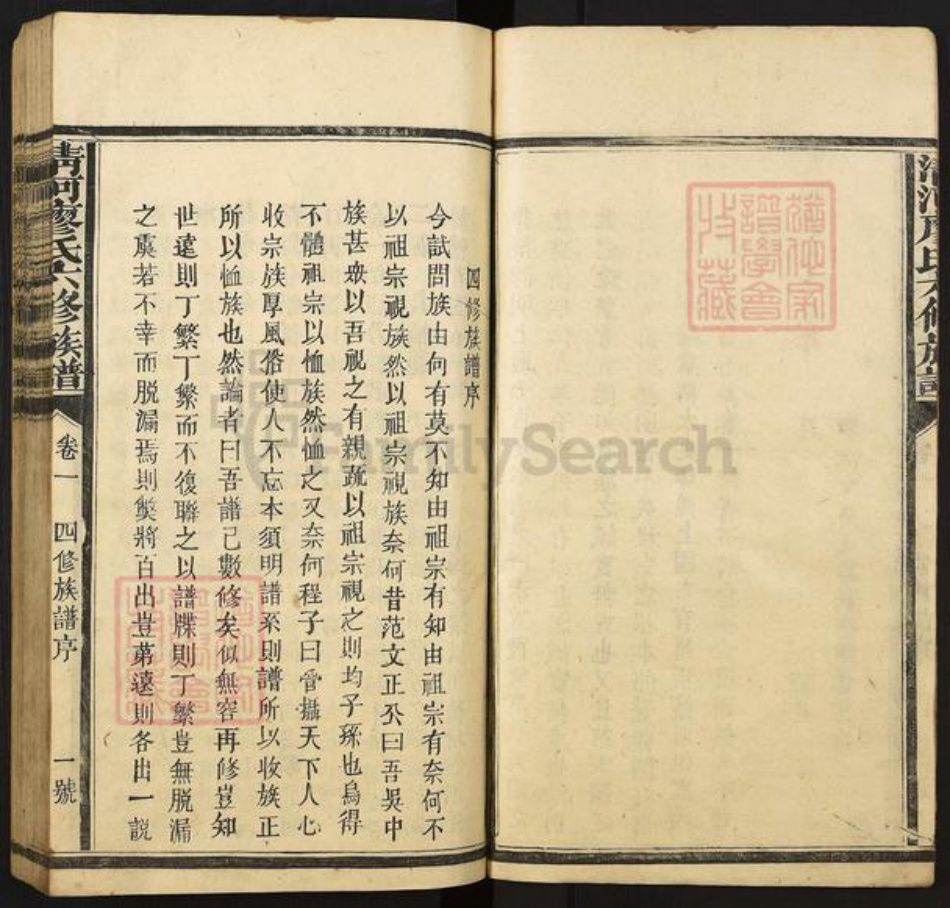 四修族譜序
今試問族由何有莫不知由祖宗有知由祖宗有奈何不
以祖宗視族然以祖宗視族奈何昔范文正公曰吾吳中
族甚衆以吾視之有親疏以祖宗視之則均子孫也烏得
不體祖宗以恤族然恤之又奈何程子曰管攝天下人心
收宗族厚風俗使人不忘本須明譜系則譜所以收族正
所以恤族也然論者曰吾譜已數修矣似無容再修豈知
世遠則丁繁丁繁而不復聯之以譜牒則丁繁豈無脱漏
之虞若不幸而脱漏焉則獘將百出豈苐遠則各出一説
清河廖氏六修族譜
卷一
四修族譜序
一號
清河廖氏六修族譜
猶他家譜學會收藏
猶他家譜學會收藏
FamilySearch